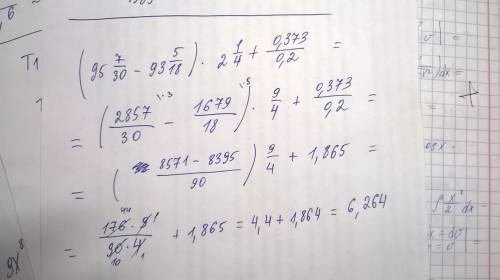 T1
(95 7/30 - 93 5/18) · 2 1/4 + 0,373/0,2 =
1
= (2857/30 \·3 - 1679/18 \·5) · 9/4 + 0,373/0,2 =
= (8571 - 8395/90) 9/4 + 1,865 =
= 176 44 · 9 1/90 10 · 4 1 + 1,865 = 4,4 + 1,864 = 6,264